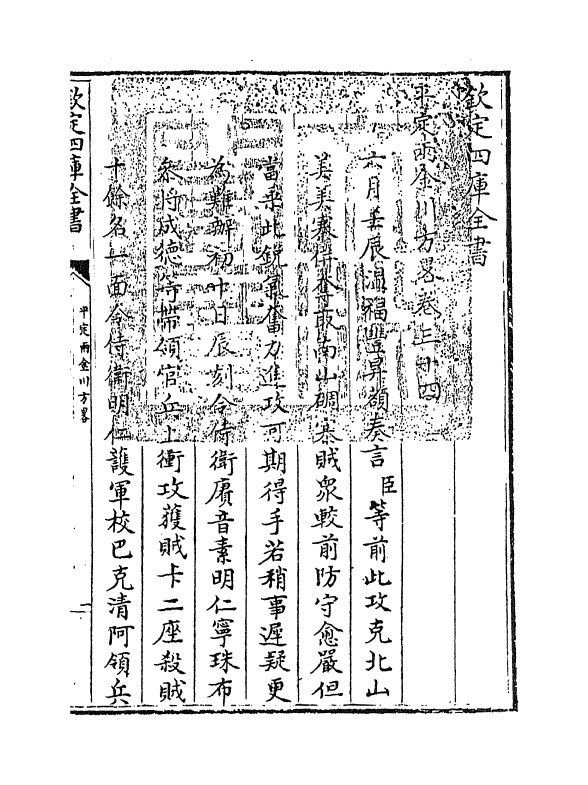 欽定四庫全書
平定兩金川方畧卷三十四
六月壬辰溫福豐昇額奏言臣等前此攻克北山
美美寨併奪取南山碉寨賊衆較前防守愈嚴但
當乗此銳氣奮力進攻可期得手若稍事遲疑更
為難辦初十日辰刻令侍衛賡音素明仁寧珠布
叅將成德等帶領官兵上衝攻獲賊卡二座殺賊
十餘名一面令侍衛明仁護軍校巴克清阿領兵
欽定四庫全書
平定兩金川方畧
一